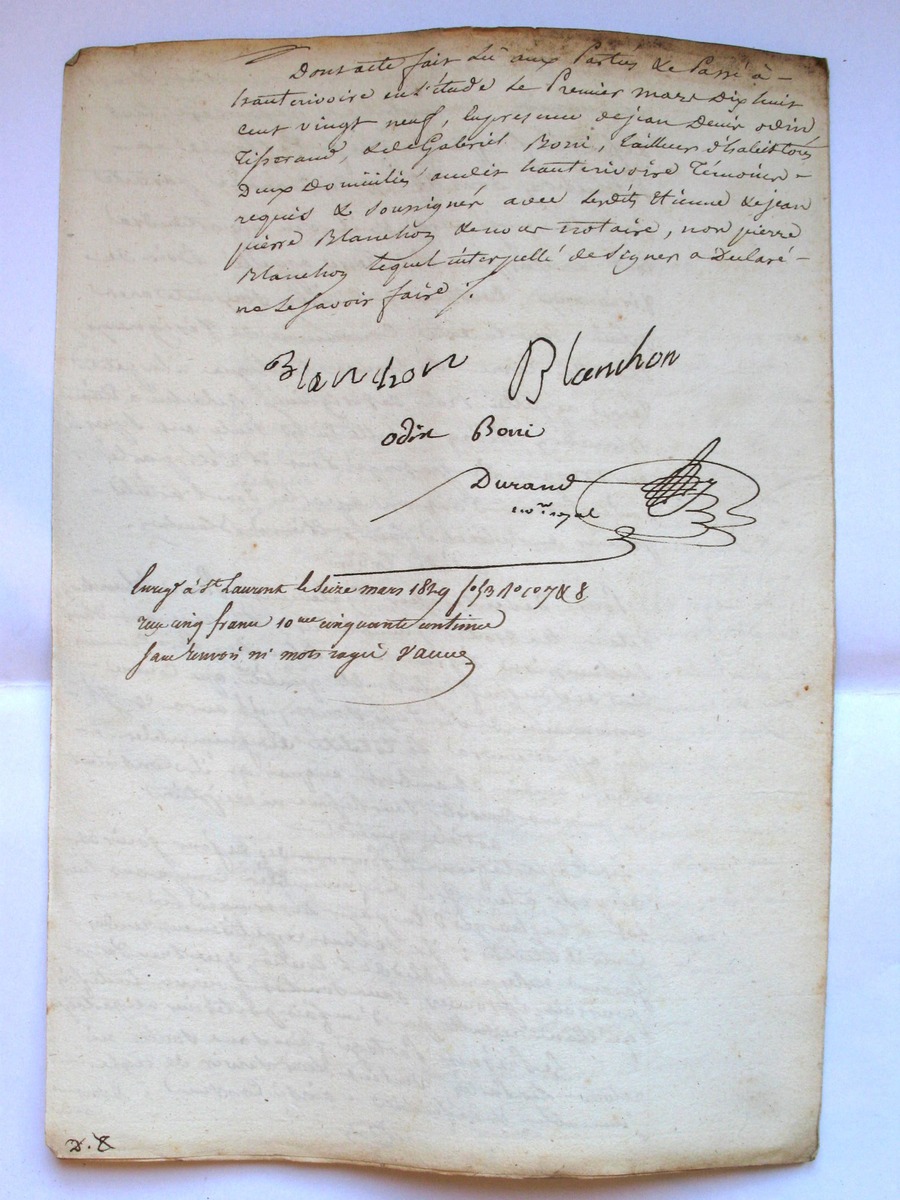 Dont acte fait lû aux Parties & Passé à -
hauterivoire en l'étude Le Premier mars Dix huit
cent vingt neuf, En presence de jean Denis odin
Tisserand, & de Gabriel Borri, tailleur d'habits tous
Deux Domiciliés audit hauterivoire Témoins -
requis & soussignés avec lesdits Etienne & jean
pierre Blanchon & nous notaire, non pierre
Blanchon lequel interpellé de signer a Déclaré -
ne Le savoir faire ./.
Blanchon Blanchon
odin Borri
Durand
not.re royal
Enreg.é à S.t Laurent le seize mars 1829 f.o 53 R.o c.o 7 & 8
reçu cinq francs 10.me cinquante centimes
sans renvoi ni mots rayés
D. &